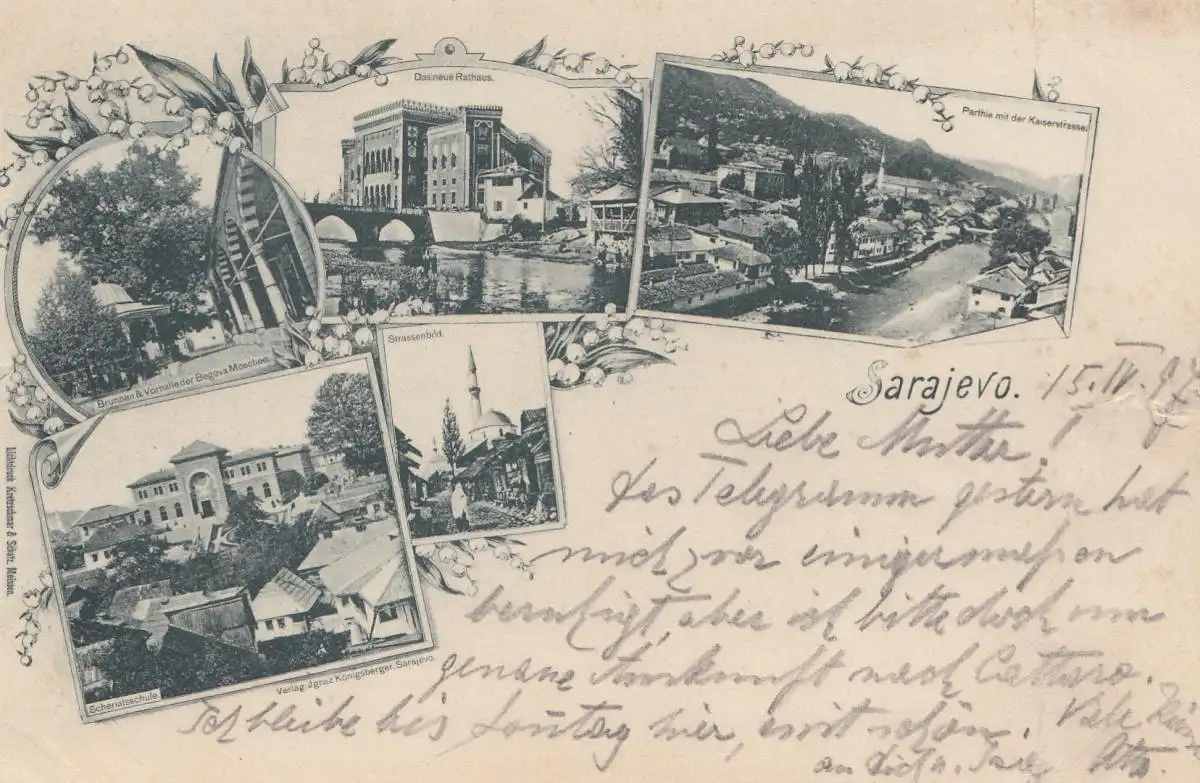 Das neue Rathaus.
Parthie mit der Kaiserstrasse.
Brunnen & Vorhalle der Begova Moschee.
Strassenbild.
Scheriatsschule.
Verlag: Jgnaz Königsberger, Sarajevo.
Lichtdruck Kretzschmar & Schatz, Meissen.
Sarajevo. 15. IV. 97
Liebe Mutter!
das Telegramm gestern hat
mich zwar einigermaßen
beruhigt, aber ich bitte doch um
genaue Auskunft nach Cattaro.
Ich bleibe bis Sonntag hier, schön. Viele
an Otto.